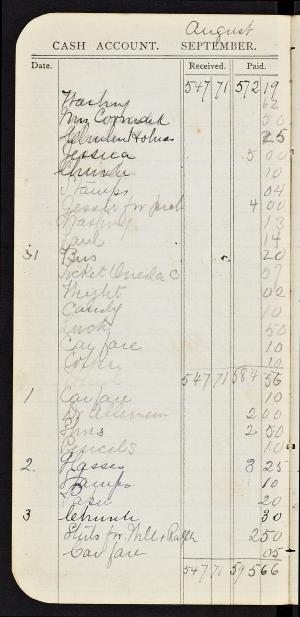 August
CASH ACCOUNT. SEPTEMBER.
Date. Received. Paid.
547 71 572 19
Washing 62
Mrs Cormack 50
25
Jessica 5 00
Church 10
Stamps 04
Jessie for 4 00
Washing 13
14
31 Bus 20
Ticket Oneida C 57
Weight 02
Candy 10
Lunch 50
Car fare 10
10
547 71 584 56
1 Car fare 10
Dr 2 00
2 50
Pencils 10
2. Glasses 8 25
Stamps 10
Paper 20
3 Church 30
Shirts for Will + Ralph 2 50
Car fare 05
547 71 595 66